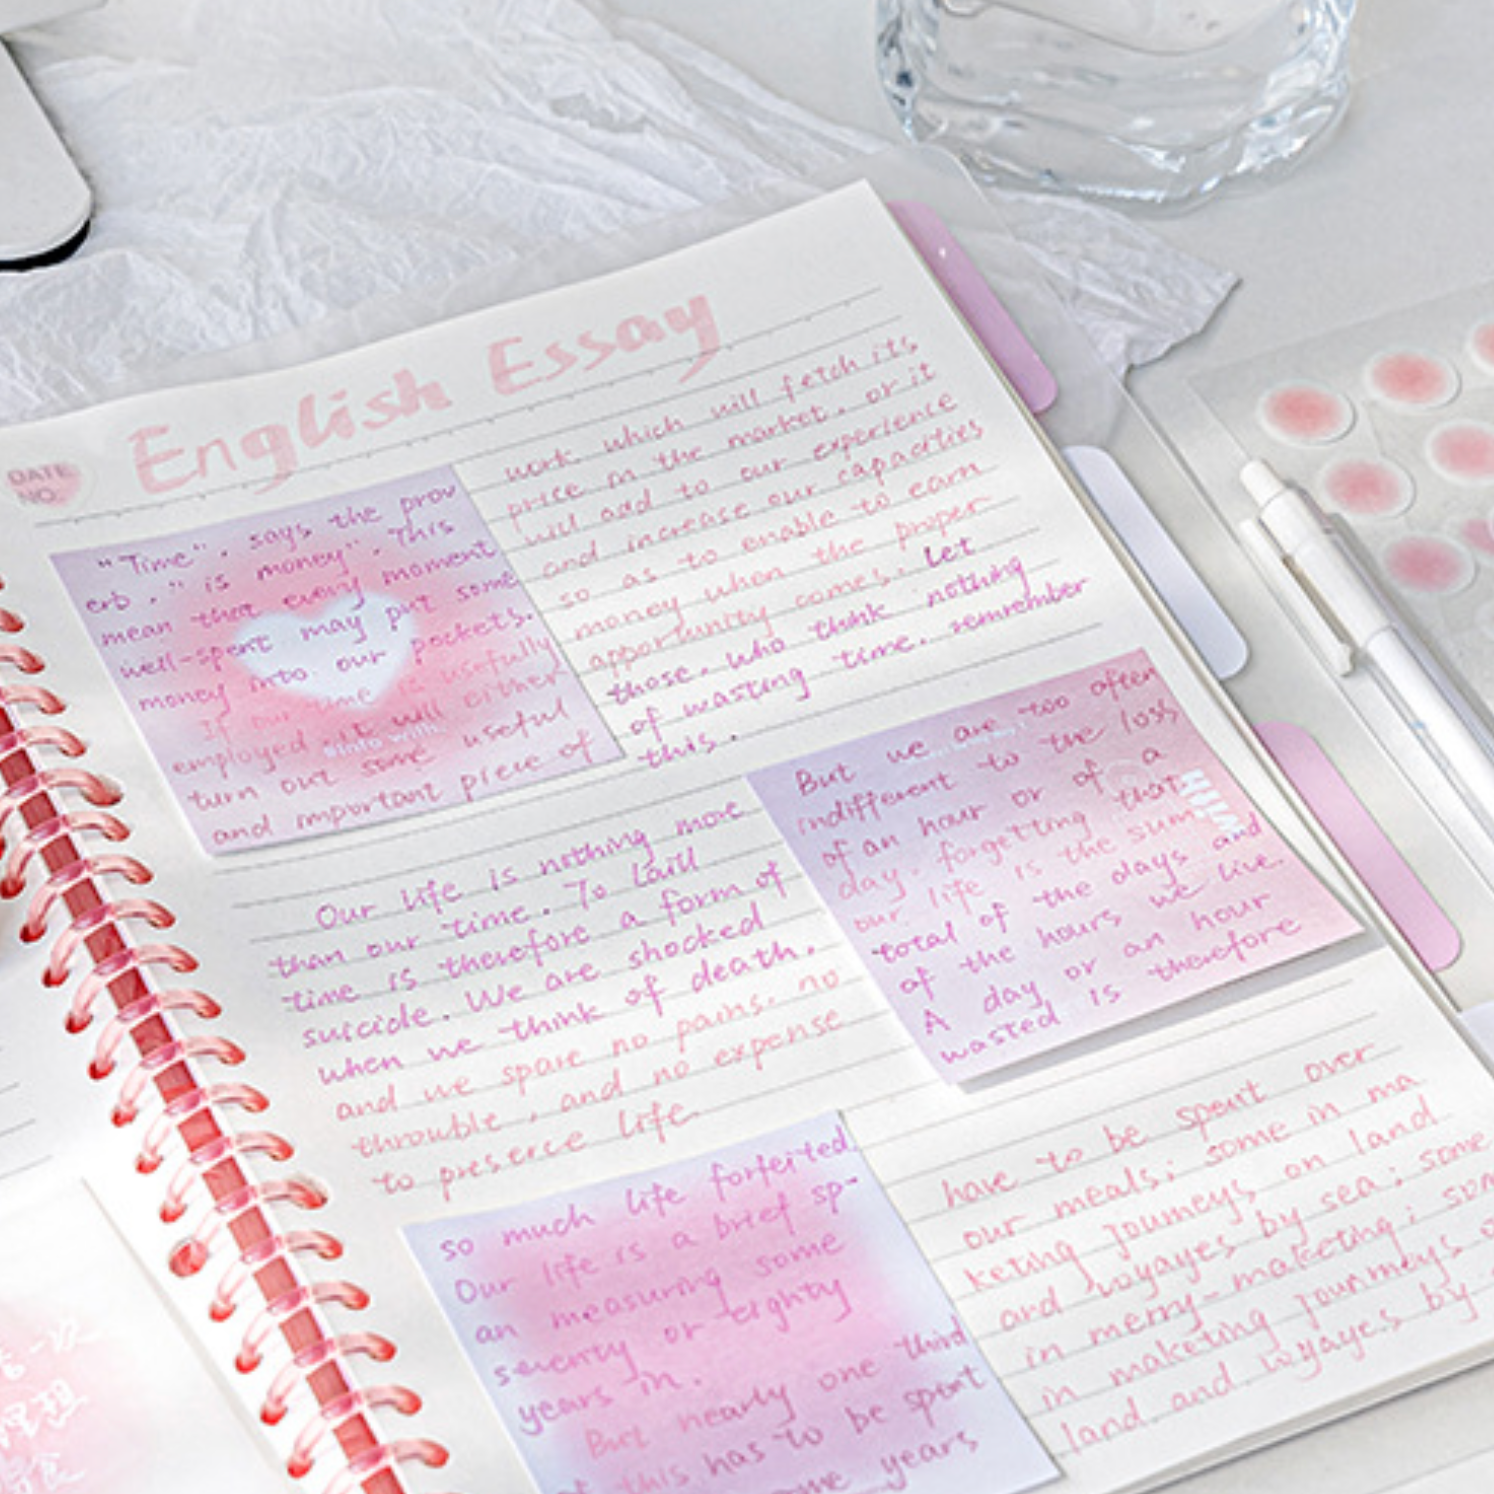 English Essay
DATE
NO.
"Time", says the prov
erb, " is money". This
mean that every moment
well-spent may put some
money into our pockets.
If our time is usefully
employed, it will either
turn out some useful
and important piece of
work which will fetch its
price in the market, or it
will add to our experience
and increase our capacities
so as to enable to earn
money when the proper
opportunity comes. Let
those, who think nothing
of wasting time, remrember
this.
Our life is nothing more
than our time. To laill
time is therefore a form of
suicide. We are shocked
when we think of death,
and we spare no pains, no
throuble, and no expense
to preserce life.
But we are too often
indifferent to the loss
of an hour or of a
day, forgetting that
our life is the sum
total of the days and
of the hours we live.
A day or an hour
wasted is therefore
so much life forfeited.
Our life is a brief sp-
an measuring some
seventy or eighty
years in.
But nearly one third
of this has to be spent
years
have to be spent over
our meals; some in ma
keting journeys on land
and voyayes by sea; some
in merry-maketing;
in maketing jounrneys
land and voyayes by